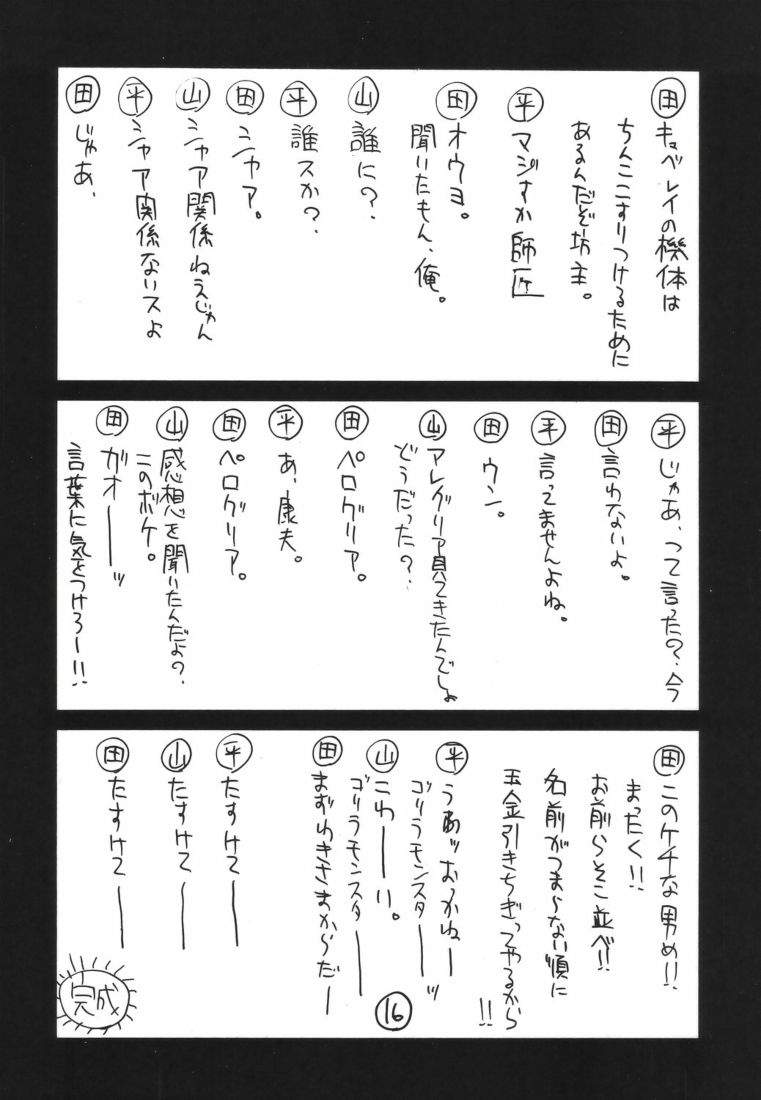 田 キュベレイの機体は
ちんここすりつけるために
あるんだぞ坊主。
平 マジすか師匠
田 オウヨ。
聞いたもん、俺。
山 誰に?
平 誰スか?
田 シャア。
山 シャア関係ねえじゃん
平 シャア関係ないスよ
田 じゃあ、
平 じゃあ、って言った?今
田 言わないよ。
平 言ってませんよね。
田 ウン。
山 アレグリア見てきたんでしょ
どうだった?
田 ペログリア。
平 あ、康夫。
田 ペログリア。
山 感想を聞いたんだよ?
このボケ。
田 ガオーーッ
言葉に気をつけろー!!
田 このケチな男め!!
まったく!!
お前らそこ並べ!!
名前がつまらない順に
玉金引きちぎってやるから!!
平 うあッおっかねー
ゴリラモンスターーッ
山 こわーーい。
ゴリラモンスターー
田 まずわきさまからだー
平 たすけてーー
山 たすけてーー
田 たすけてーー
完成
16